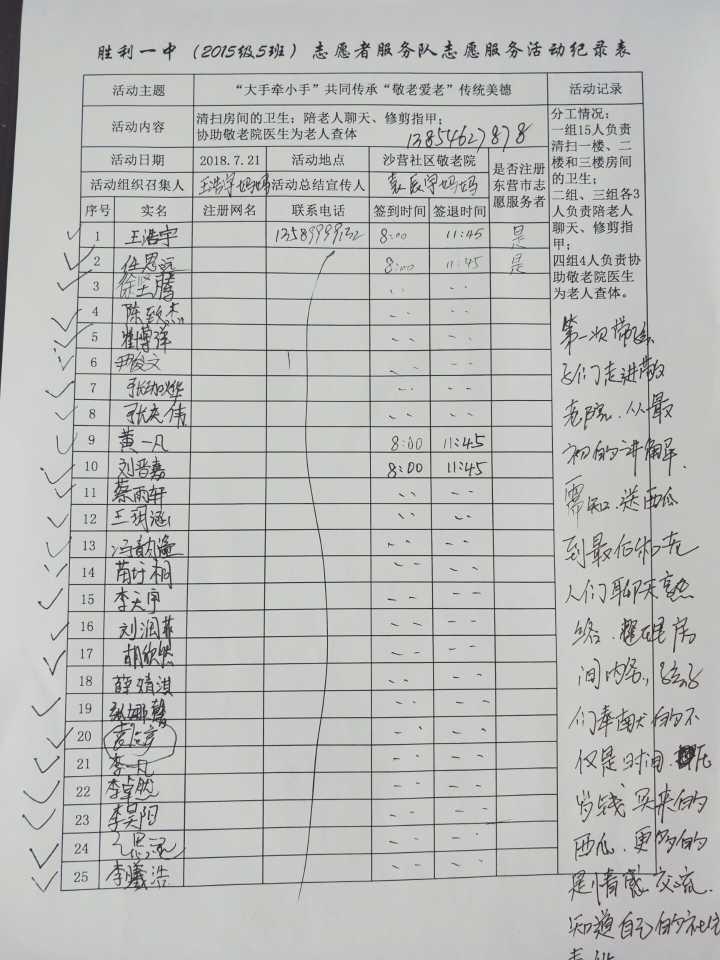 胜利一中（2015级5班）志愿者服务队志愿服务活动纪录表
活动主题 “大手牵小手”共同传承“敬老爱老”传统美德 活动记录
活动内容 清扫房间的卫生；陪老人聊天、修剪指甲；
协助敬老院医生为老人查体 13854627878
活动日期 2018.7.21 活动地点 沙营社区敬老院 是否注册东营市志愿服务者
活动组织召集人 王浩宇妈妈 活动总结宣传人 袁辰宇妈妈
序号 实名 注册网名 联系电话 签到时间 签退时间
1 王浩宇 8:00 11:45 是
2 任思远 8:00 11:45 是
3
4 陈致杰
5 崔博洋
6 尹俊文
7
8 张克伟
9 黄一凡 8:00 11:45
10 刘晋嘉 8:00 11:45
11 蔡雨轩
12 王玥涵
13
14 苗圩桐
15 李天宇
16 刘润菲
17 胡欣然
18 薛婧淇
19
20
21 李一凡
22 李卓然
23 李昊阳
24
25 李曦浩
分工情况：
一组15人负责
清扫一楼、二
楼和三楼房间
的卫生；
二组、三组各3
人负责陪老人
聊天、修剪指
甲；
四组4人负责协
助敬老院医生
为老人查体。
第一次带孩
子们走进敬
老院，从最
初的讲解
需知，送西瓜
到最后和老
人们聊天熟
络，整理房
间内务，孩子
们奉献的不
仅是时间，
岁钱买来的
西瓜，更多的
是情感交流，
知道自己的社会
责任